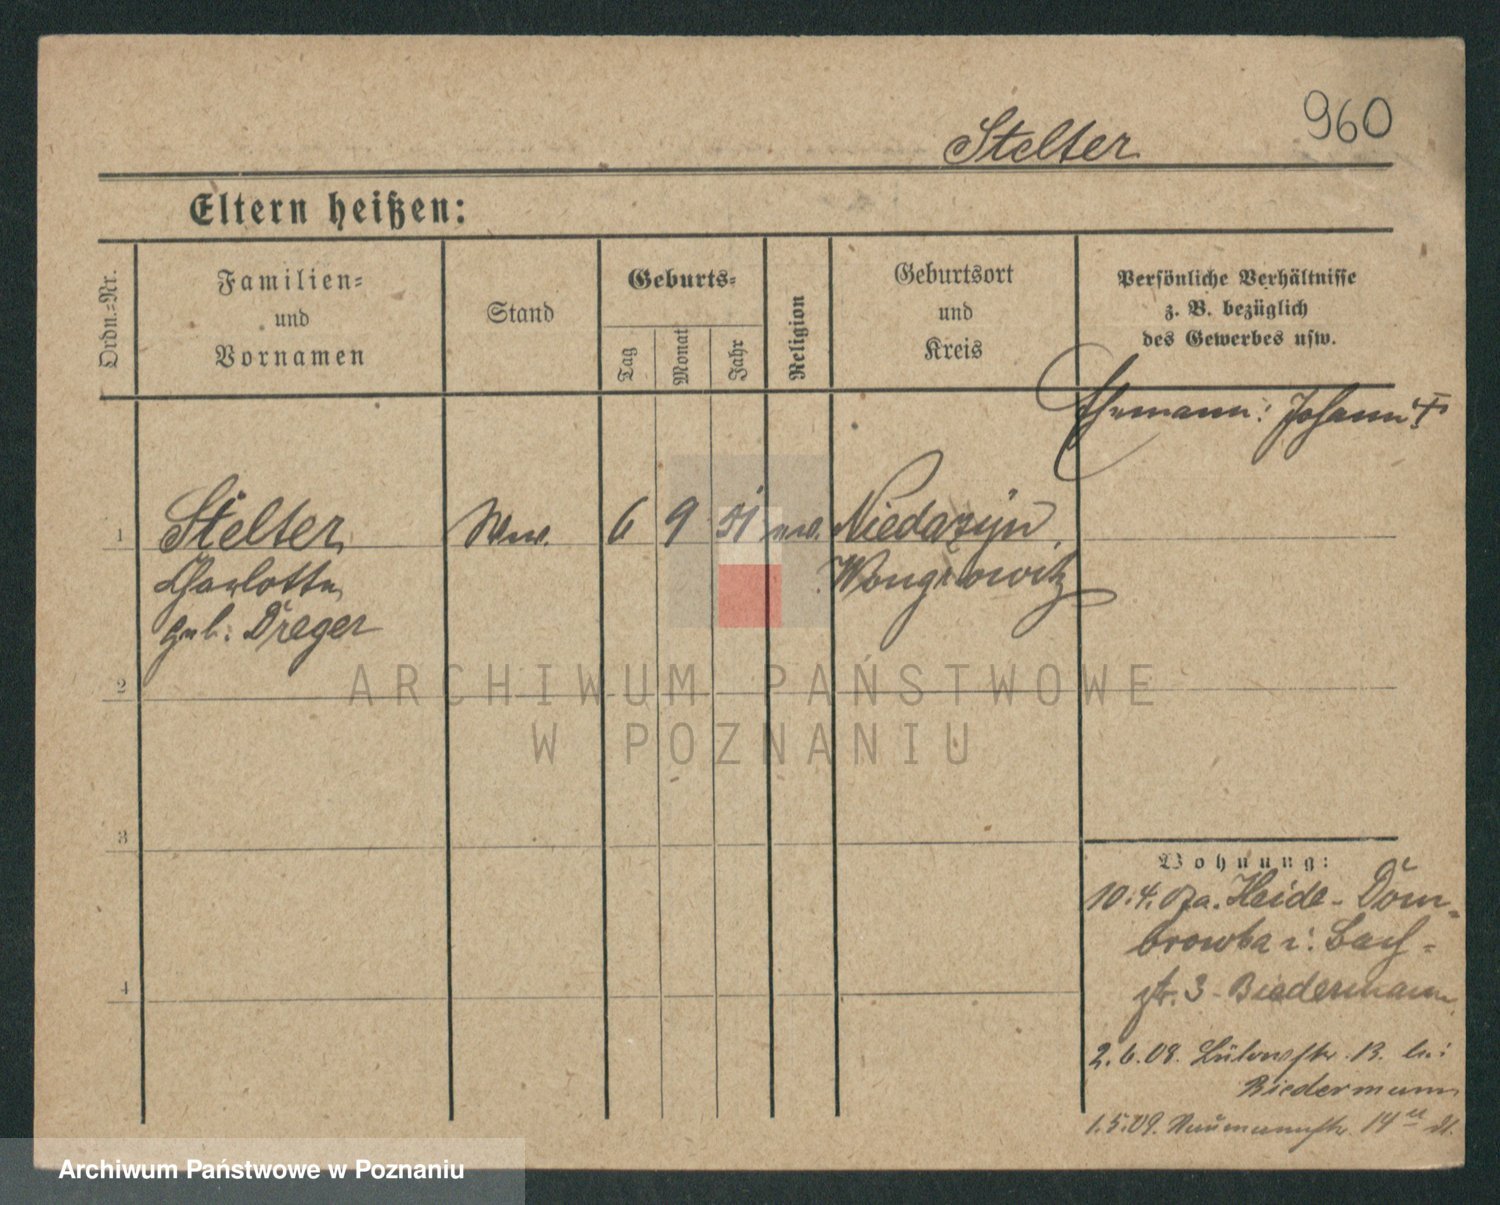 960
Stelter
Eltern heißen:
Ordn.-Nr.
Familien-
und
Vornamen
Stand
Geburts-
Tag
Monat
Jahr
Religion
Geburtsort
und
Kreis
Persönliche Verhältnisse
z. B. bezüglich
des Gewerbes usw.
Ehemann: Johann †
1
Stelter, Ww. 6 9 51 ev. Niedarzyn,
Charlotte, Wongrowitz
geb. Dreger
2
3
4
Wohnung:
10.4.07 a. Heide - Dom-
browka n. Bach-
str. 3 Biedermann
2.6.08. Bülowstr. 13. bei
Biedermann
1.5.09. Naumannstr. 14
ARCHIWUM PAŃSTWOWE
W POZNANIU
Archiwum Państwowe w Poznaniu